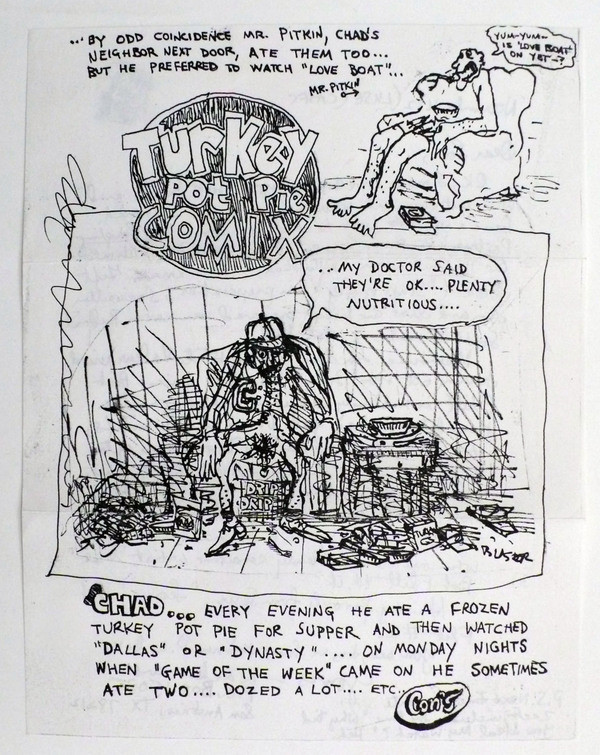 ... BY ODD COINCIDENCE MR. PITKIN, CHAD'S
NEIGHBOR NEXT DOOR, ATE THEM TOO...
BUT HE PREFERRED TO WATCH "LOVE BOAT"...
MR. PITKIN
YUM-YUM-
IS 'LOVE BOAT'
ON YET-?
TURKEY
POT PIE
COMIX
...MY DOCTOR SAID
THEY'RE OK.... PLENTY
NUTRITIOUS....
C
CHAD... EVERY EVENING HE ATE A FROZEN
TURKEY POT PIE FOR SUPPER AND THEN WATCHED
"DALLAS" OR "DYNASTY".... ON MONDAY NIGHTS
WHEN "GAME OF THE WEEK" CAME ON HE SOMETIMES
ATE TWO.... DOZED A LOT.... ETC..
Con't